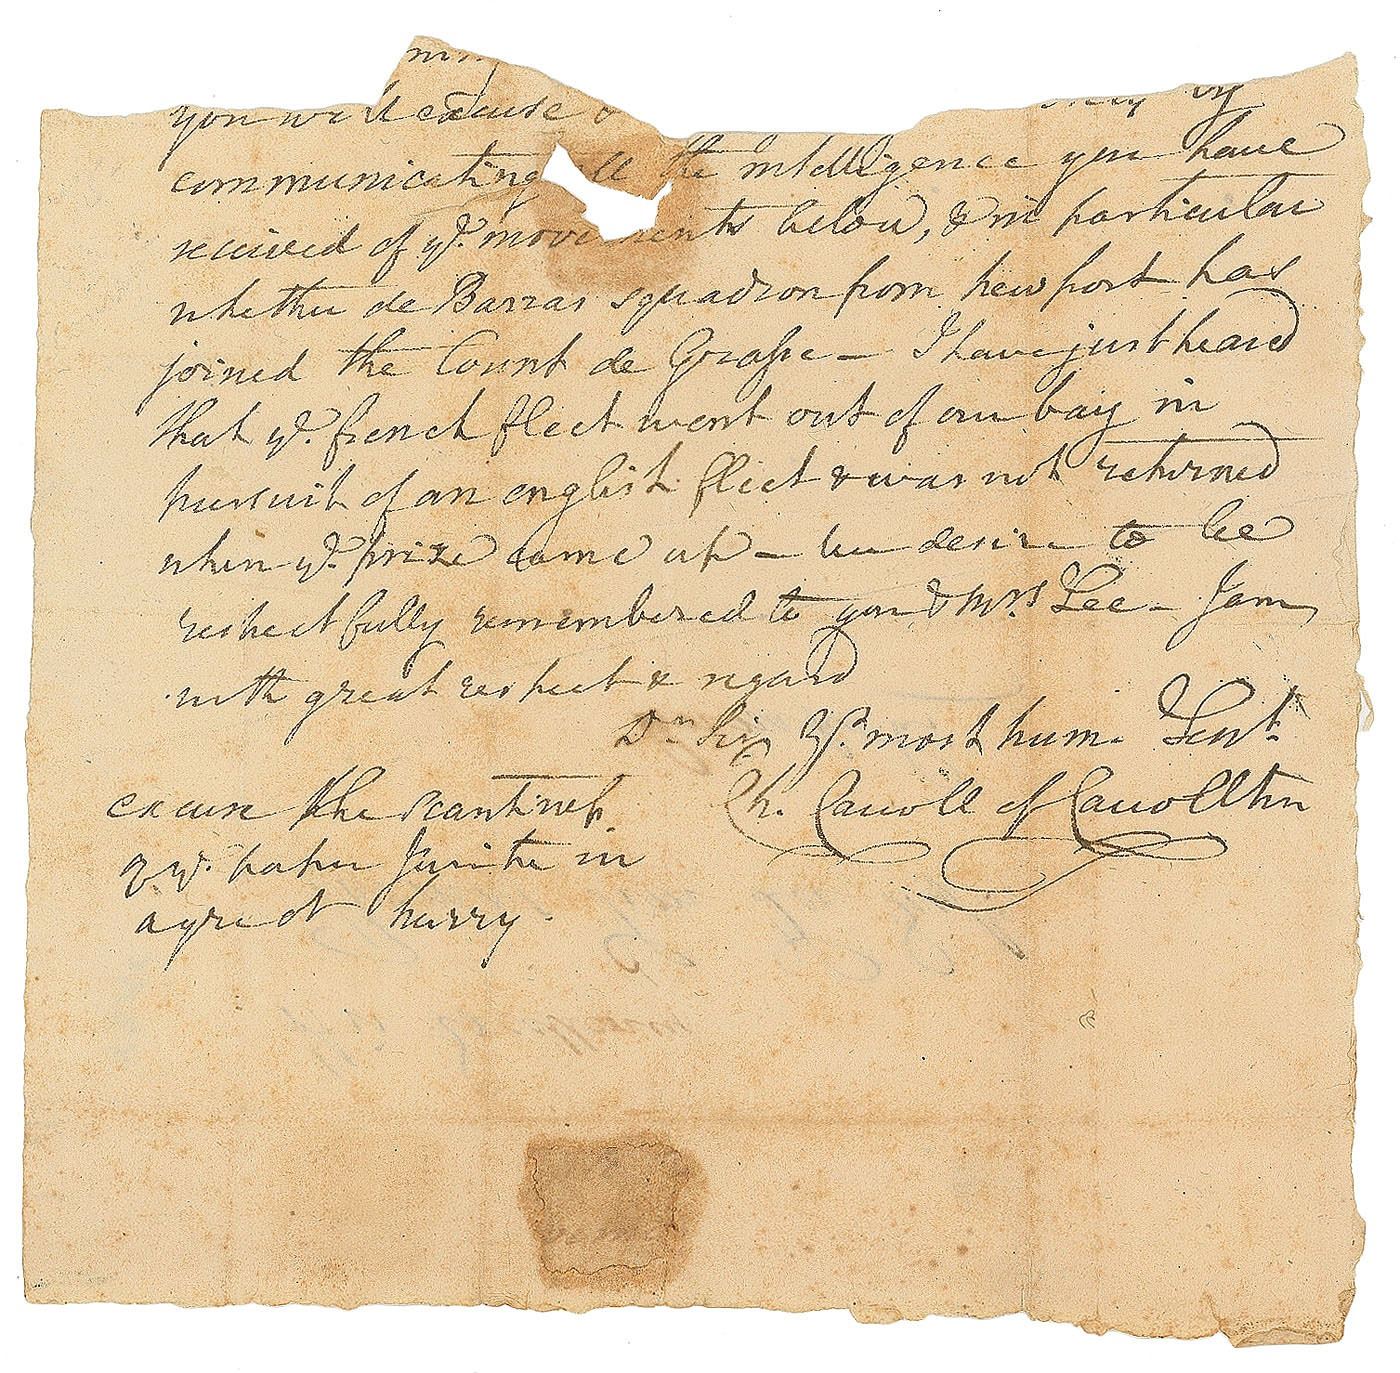 you will excuse
communicating all the intelligence you have
received of ye. movements below, & in particular
whether de Barras squadron from new port has
joined the Count de Grasse — I have just heard
that ye. french fleet went out of our bay in
pursuit of an english fleet & was not returned
when ye. prize came up — desire to be
respectfully remembered to you & Mrs Lee — I am
with great respect & regard
Dr. Sir Yr. most hum. Servt.
Ch. Carroll of Carrollton
excuse the scantiness
of ye. paper I write in
a great hurry.